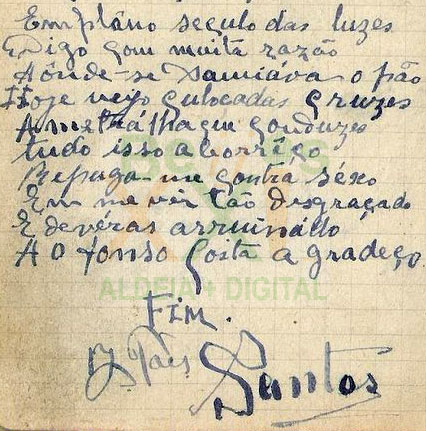 Em plâno seculo das luzes
E Digo com muita razão
Aônde-se Samiáva o pão
Hoje vejo culocadas cruzes
A metrálha que conduzes
tudo isso aborrêço
Repuga-me contrá séxo
Em me vêr tão desgraçado
E devéras arruinádo
A O fonso Costa agradeço
FIM.
Pais Santos
ALDEIA + DIGITAL